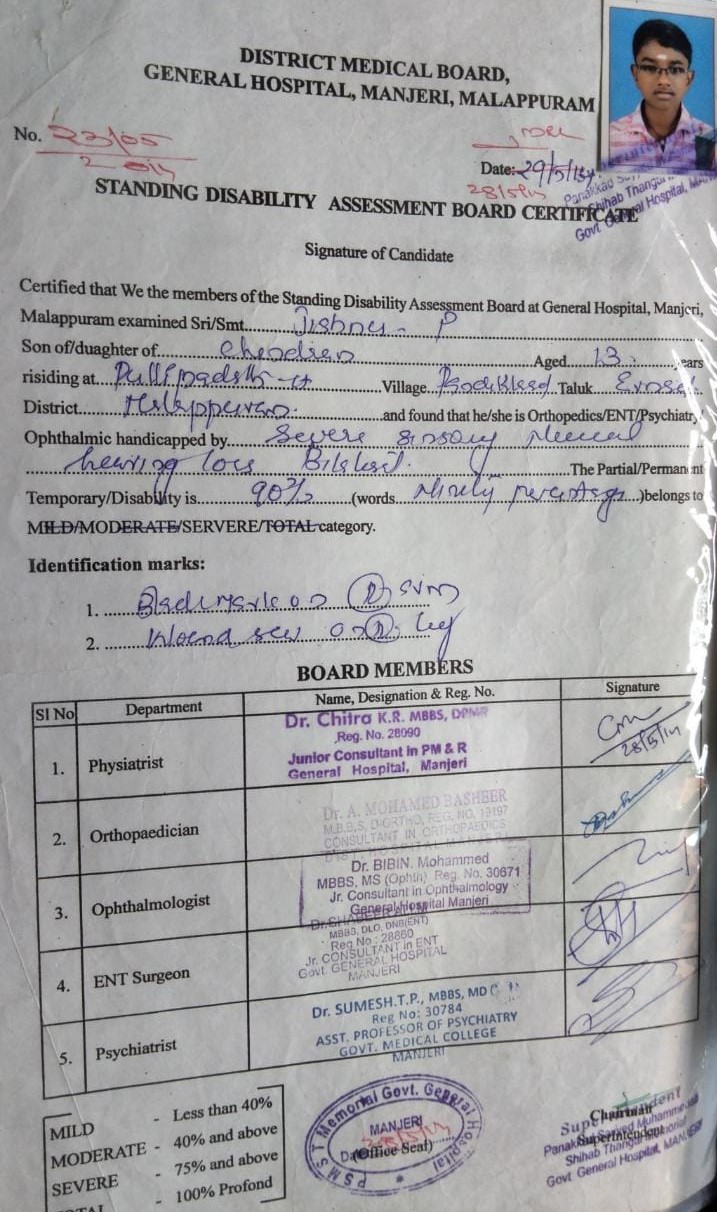 DISTRICT MEDICAL BOARD,
GENERAL HOSPITAL, MANJERI, MALAPPURAM
No. 23/05
2014
Date: 29/5/14
28/5/14
STANDING DISABILITY ASSESSMENT BOARD CERTIFICATE
Shihab Thangal
Govt General Hospital,
Signature of Candidate
Certified that We the members of the Standing Disability Assessment Board at General Hospital, Manjeri,
Malappuram examined Sri/Smt. Jishnu - P
Son of/duaghter of Aged 13 years
risiding at Village Taluk
District Malappuram and found that he/she is Orthopedics/ENT/Psychiatry/
Ophthalmic handicapped by Severe sensory Neural
hearing loss Bilateral. The Partial/Permanent
Temporary/Disability is 90% (words Ninety percentage )belongs to
MILD/MODERATE/SERVERE/TOTAL category.
Identification marks:
1. on (R) arm
2. Wound scar on (R) leg
BOARD MEMBERS
Sl No Department Name, Designation & Reg. No. Signature
1. Physiatrist Dr. Chitra K.R. MBBS, DPMR
Reg. No. 28090
Junior Consultant in PM & R
General Hospital, Manjeri
28/5/14
2. Orthopaedician Dr. A. MOHAMED BASHEER
M.B.B.S, D-ORTHO, REG. NO. 19197
CONSULTANT IN ORTHOPAEDICS
3. Ophthalmologist Dr. BIBIN. Mohammed
MBBS, MS (Ophth) Reg. No. 30671
Jr. Consultant in Ophthalmology
General Hospital Manjeri
4. ENT Surgeon
MBBS, DLO, DNB(ENT)
Reg No: 28860
Jr. CONSULTANT in ENT
Govt. GENERAL HOSPITAL
MANJERI
5. Psychiatrist Dr. SUMESH.T.P., MBBS, MD
Reg No: 30784
ASST. PROFESSOR OF PSYCHIATRY
GOVT. MEDICAL COLLEGE
MANJERI
MILD - Less than 40%
MODERATE - 40% and above
SEVERE - 75% and above
TOTAL - 100% Profond
PSMST Memorial Govt. General Hospital
MANJERI
28/5/14
(Office Seal)
Chairman
Superintendent
Superintendent
Shihab Thangal Memorial
Govt General Hospital, MANJERI